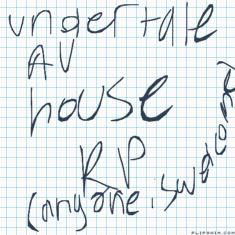 undertale
AU
house
RP
(anyone is welcome)
FLIPANIM.COM